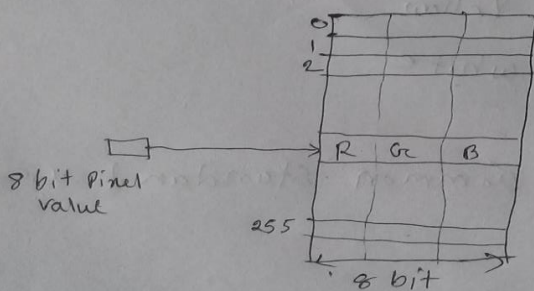 0
1
2
R G B
8 bit Pixel
value
255
8 bit